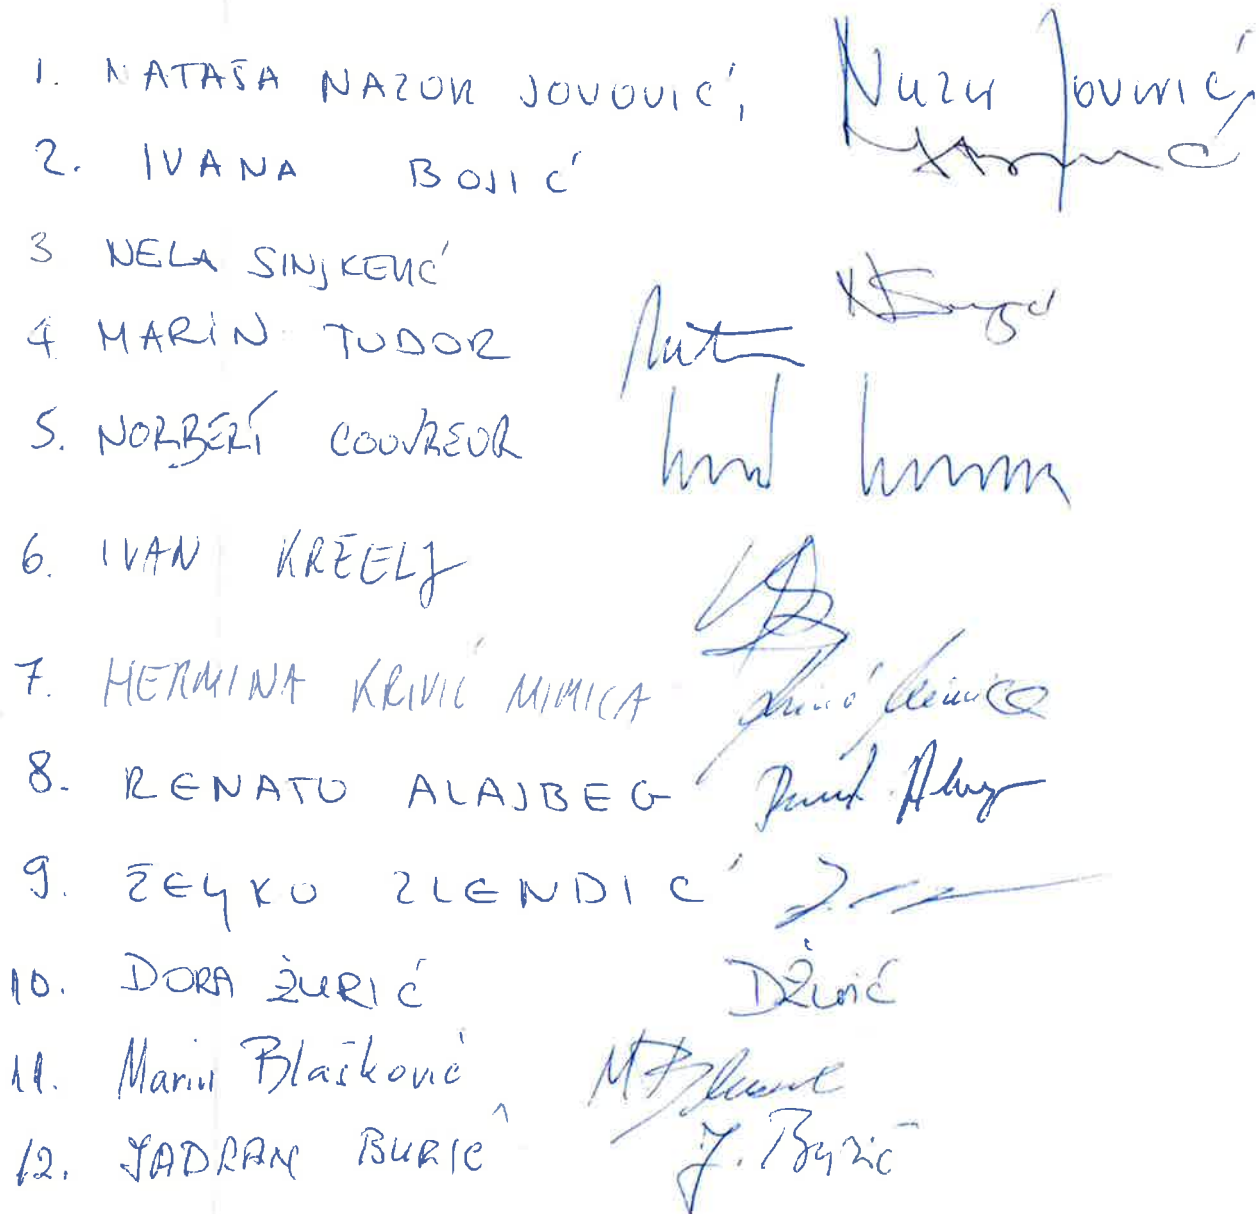 1. NATAŠA NAZOR JOVOVIĆ, Nazor Jovović
2. IVANA BOJIĆ
3 NELA SINJKEVIĆ
4 MARIN TUDOR
5. NORBERT COUVREUR
6. IVAN KRŽELJ
7. HERMINA KRIVIĆ MIMICA Krivić Mimica
8. RENATO ALAJBEG
9. ŽELJKO ZLENDIĆ
10. DORA ŽURIĆ DŽurić
11. Marin Blašković
12. JADRAN BURIĆ J. Burić